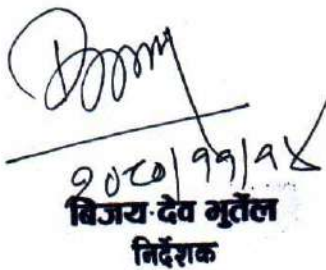 २०८०/११/१४
बिजय देव भुर्तेल
निर्देशक